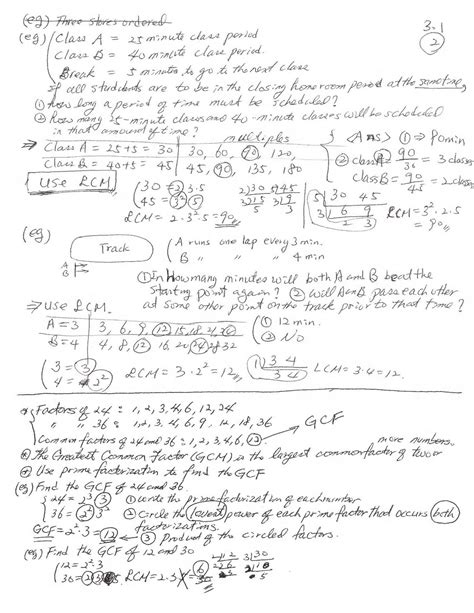 (eg) Three stores ordered
3.1
2
(eg) Class A = 25 minute class period
Class B = 40 minute class period.
Break = 5 minutes to go to the next class
If all students are to be in the closing homeroom period at the same time,
① how long a period of time must be scheduled?
② How many 25-minute classes and 40-minute classes will be scheduled
in that amount of time?
multiples
<Ans> ① ⇒ 90 min
⇒ Class A = 25+5 = 30 | 30, 60, 90, 120,
Class B = 40+5 = 45 | 45, 90, 135, 180
② class A = 90/30 = 3 classes
class B = 90/45 = 2 classes
Use LCM
30 = 2·3·5
45 = 3²·5
LCM = 2·3²·5 = 90
5) 30 45
3) 6 9
2 3
LCM = 3²·2·5
= 90
(eg)
Track
A
B
A runs one lap every 3 min.
B " " " 4 min
① In How many minutes will both A and B be at the
starting point again? ② Will A and B pass each other
at some other point on the track prior to that time?
⇒ Use LCM.
A = 3 | 3, 6, 9, 12, 15, 18, 21, 24
B = 4 | 4, 8, 12, 16, 20, 24, 28, 32
① 12 min.
② No
3 = 3
4 = 2²
LCM = 3·2² = 12
1) 3 4
3 4
LCM = 3·4 = 12.
Factors of 24 = 1, 2, 3, 4, 6, 12, 24
" " 36 = 1, 2, 3, 4, 6, 9, 12, 18, 36
GCF
Common factors of 24 and 36 = 1, 2, 3, 4, 6, 12
more numbers.
The Greatest Common Factor (GCM) is the largest common factor of two or
Use prime factorization to find the GCF
(eg) Find the GCF of 24 and 36.
24 = 2³·3
① Write the prime factorization of each number
36 = 2²·3²
② Circle the lowest power of each prime factor that occurs both
factorizations.
GCF = 2²·3 = 12 ← ③ Product of the circled factors.
(eg) Find the GCF of 12 and 30
12 = 2²·3